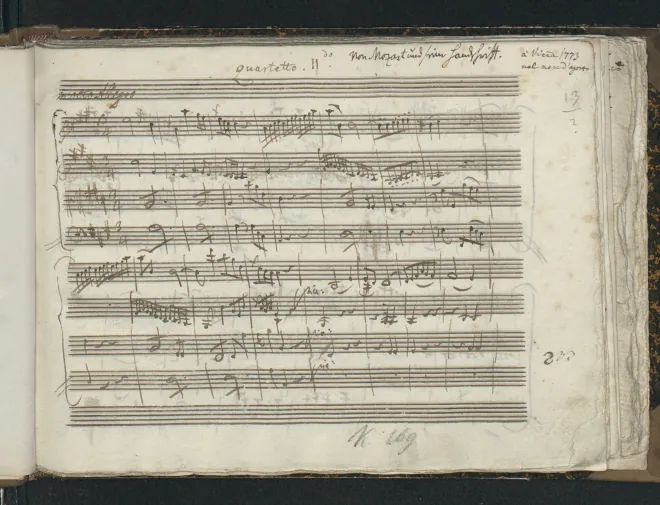 quartetto. II do
Von Mozart und seine Handschrift.
à Vienna 1773
nel mese d'agosto
Allegro
13
2
pia:
pia:
pia:
K: 169